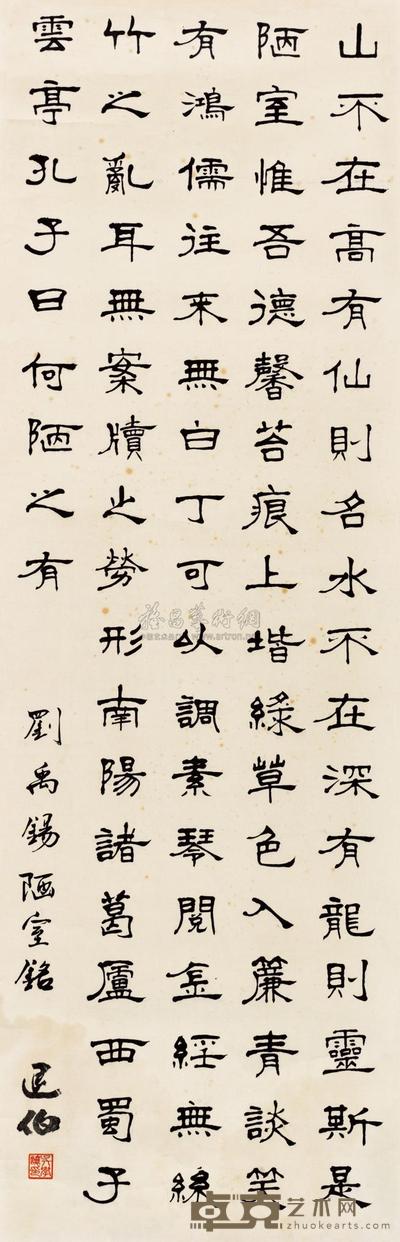 山不在高有仙則名水不在深有龍則靈斯是
陋室惟吾德馨苔痕上堦綠草色入簾青談笑
有鴻儒往來無白丁可以調素琴閱金經無絲
竹之亂耳無案牘之勞形南陽諸葛廬西蜀子
雲亭孔子曰何陋之有
劉禹錫陋室銘
伯
雅昌藝術網
卓克艺术网
zhuokearts.com